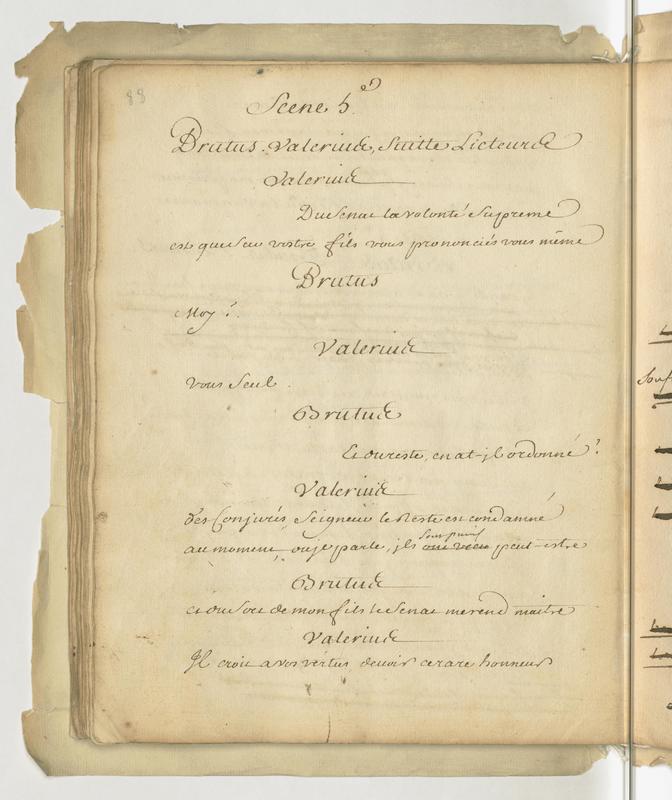 88
Scene 5e
Brutus. Valerius, Suitte Licteurs
Valerius
Du Senat la volonté Supreme
est que Sur vostre fils vous prononciés vous même
Brutus
Moy ?
Valerius
vous Seul.
Brutus
Et du reste, en at-jl ordonné ?
Valerius
des Conjurés, Seigneur le Reste est condamné
au moment, ou je parle, jls ont vécu peut-estre
Brutus
et du Sort de mon fils le Senat me rend maitre
Valerius
Jl croit a vos vertus devoir ce rare honneur